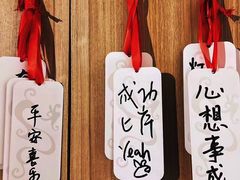 平安喜乐
成功
上岸
Yeah
心想事成